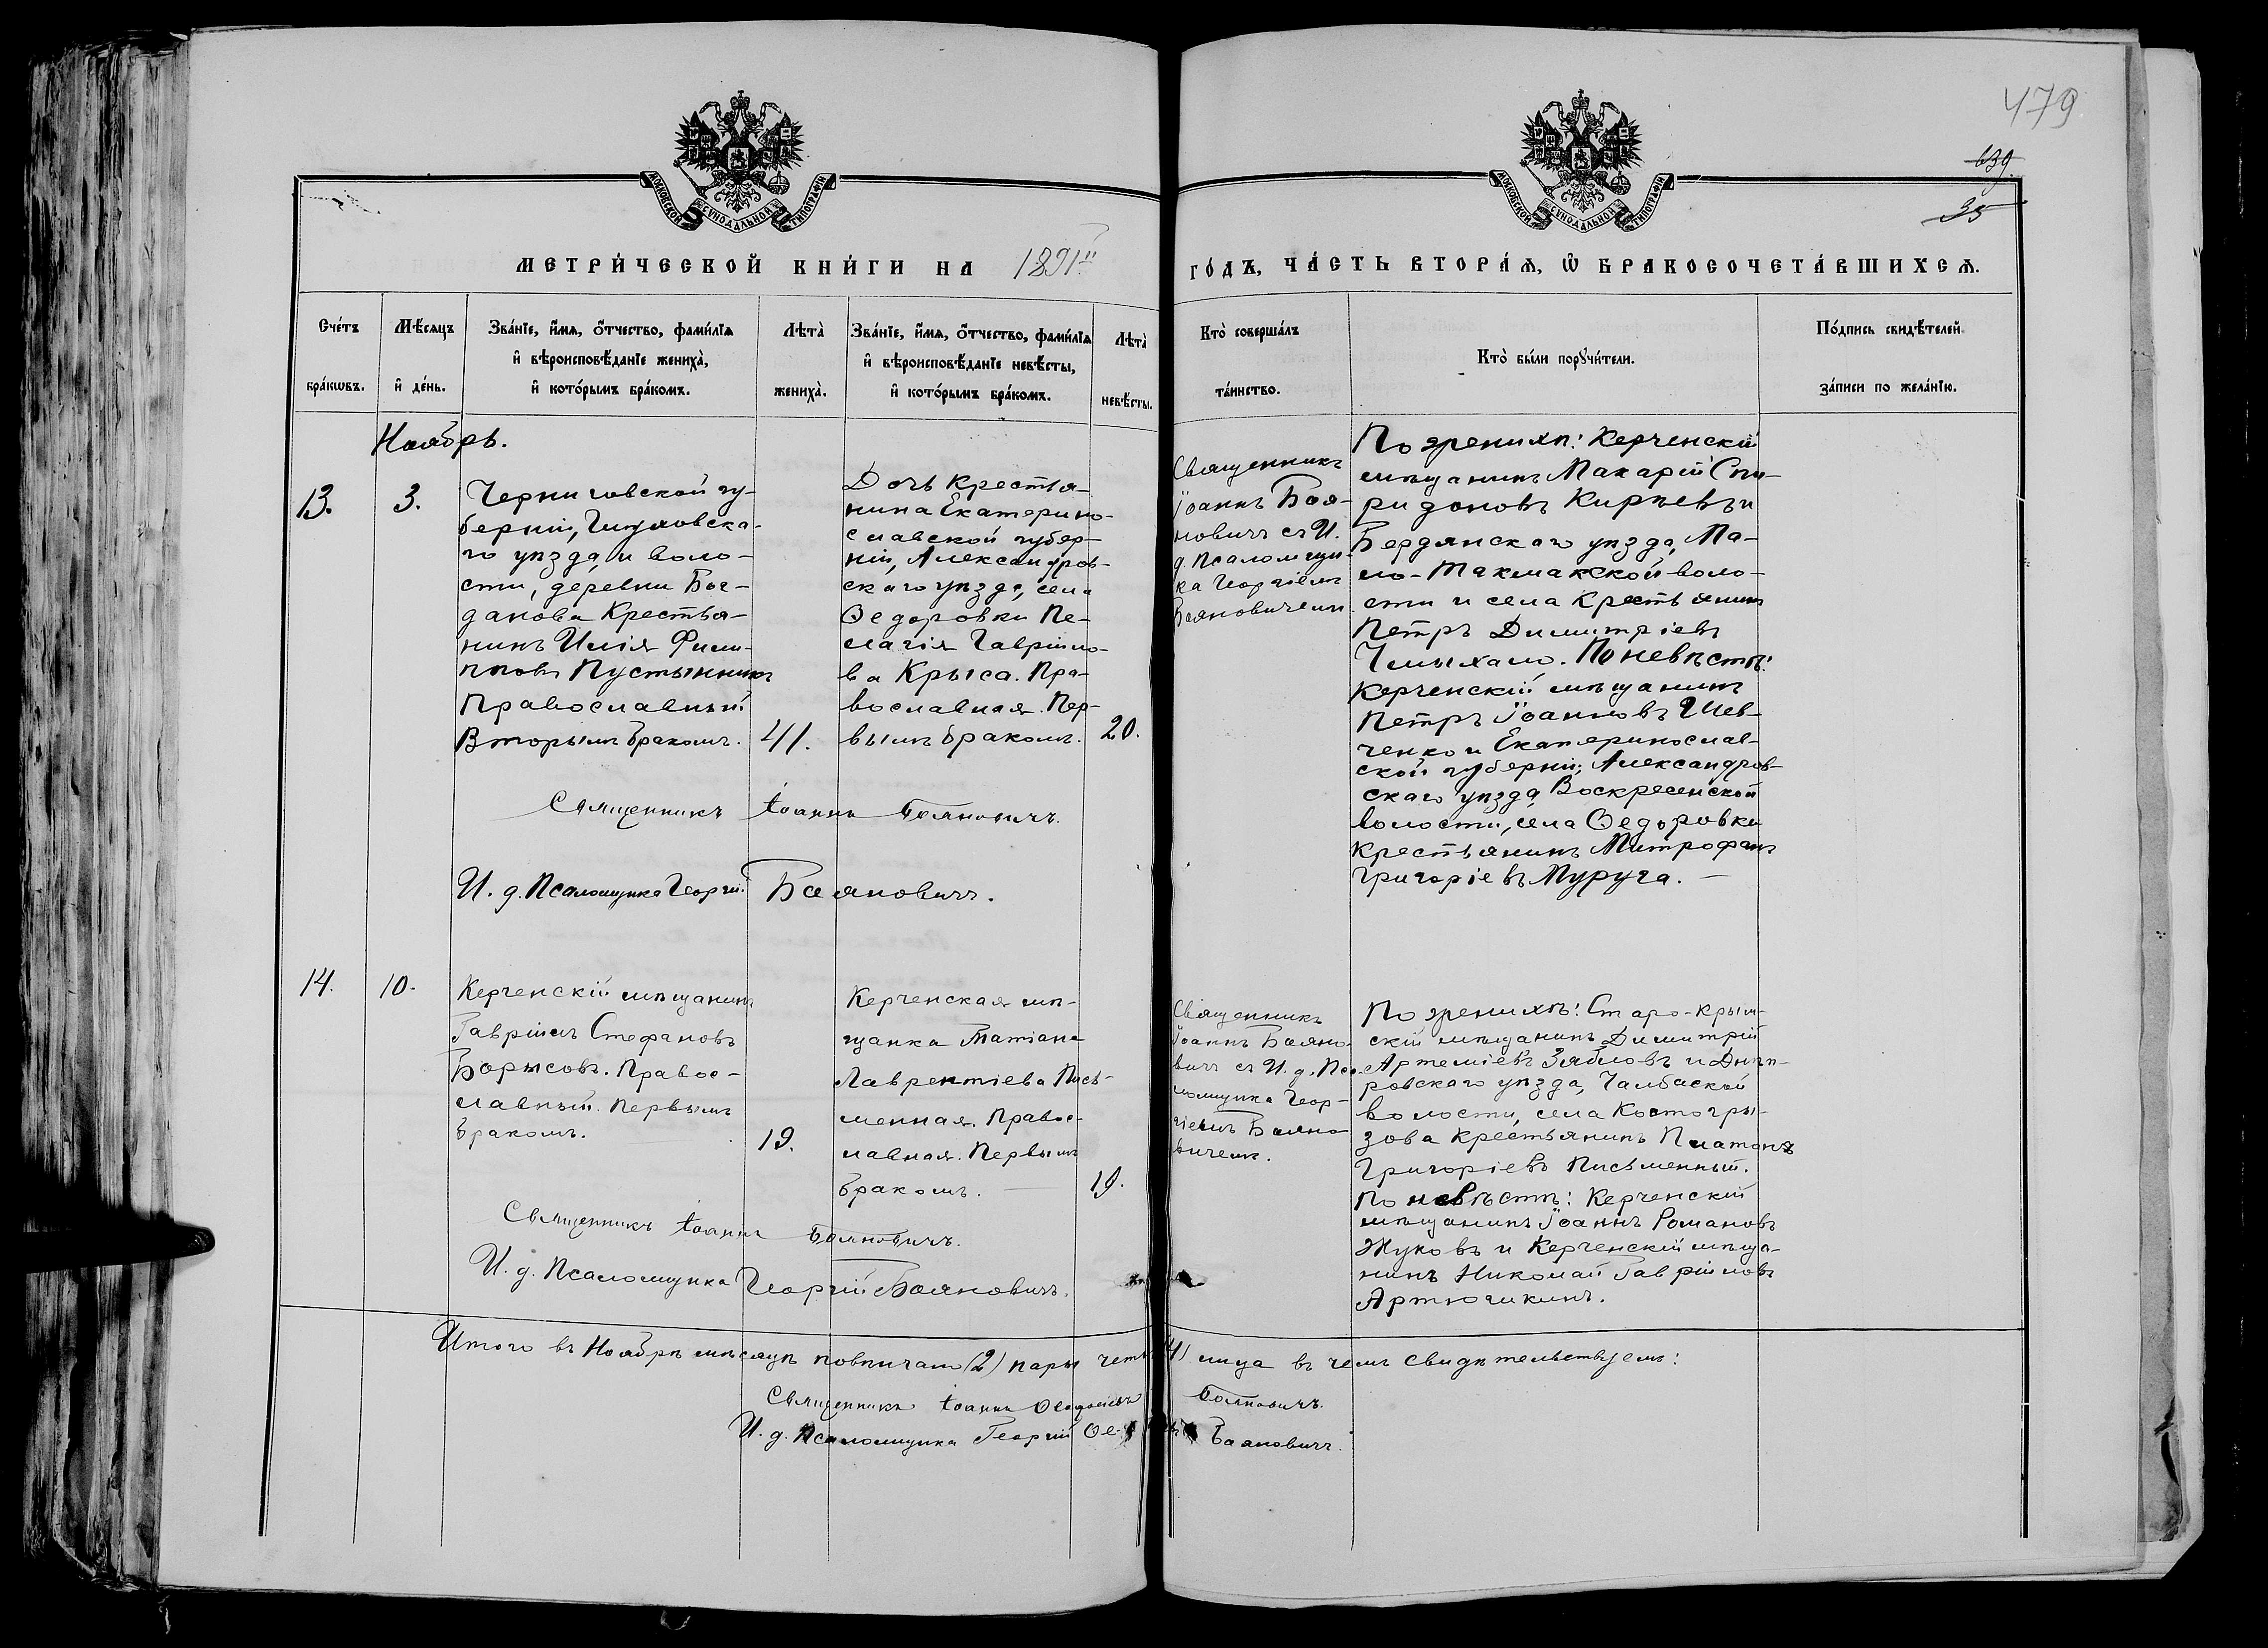 479
639.
35
МОСКОВСКОЙ СѴНОДАЛЬНОЙ ТИПОГРАФІИ
МОСКОВСКОЙ СѴНОДАЛЬНОЙ ТИПОГРАФІИ
МЕТРИ́ЧЕСКОЙ КНИ́ГИ НА 1891й ГО́ДЪ, ЧА́СТЬ ВТОРА́Ѧ, Ѽ БРАКОСОЧЕТА́ВШИХСѦ.
Сче́тъ
бра́кѡвъ.
Мѣ́сѧцъ
и҆ де́нь.
Зва́нїе, и҆́мѧ, ѻ҆́тчество, фами́лїѧ
и҆ вѣроисповѣ́данїе жениха̀,
и҆ кото́рымъ бра́комъ.
Лѣта̀
жениха̀.
Зва́нїе, и҆́мѧ, ѻ҆́тчество, фами́лїѧ
и҆ вѣроисповѣ́данїе невѣ́сты,
и҆ кото́рымъ бра́комъ.
Лѣта̀
невѣ́сты.
Кто̀ соверша́лъ
та́инство.
Кто̀ бы́ли порꙋчи́тели.
По́дпись свидѣ́телей
за́писи по жела́нїю.
Ноябрь.
13.
3.
Черниговской гу-
берніи,
го уѣзда, и воло-
сти, деревни Бог-
данова Крестья-
нинъ Илія Фили-
пповъ Пустынникъ
Православный
Вторымъ бракомъ.
41.
Дочь Крестья-
нина Екатерино-
славской губер-
ніи, Александров-
скаго уѣзда, села
Ѳедоровки Пе-
лагія Гавріило-
ва Крыса. Пра-
вославная. Пер-
вымъ бракомъ.
20.
Священникъ
Іоаннъ Боя-
новичъ съ И.
д. Псаломщи-
ка Георгіемъ
Бояновичемъ
По женихѣ: Керченскій
мѣщанинъ Макарій Спи-
ридоновъ Кирѣевъ и
Бердянскаго уѣзда, Ма-
ло-Такмакской воло-
сти и села Крестьянинъ
Петръ Димитріевъ
По невѣстѣ:
Керченскій мѣщанинъ
Петръ Іоанновъ Шев-
ченко и Екатеринослав-
ской губерніи, Александров-
скаго уѣзда Воскресенской
волости, села Ѳедоровки
крестьянинъ Митрофанъ
Григоріевъ Муруга.
Священникъ Іоаннъ Бояновичъ.
И. д. Псаломщика Георгій Бояновичъ.
14.
10.
Керченскій мѣщанинъ
Гавріилъ Стефановъ
Борисовъ. Правос-
лавный. Первымъ
бракомъ.
19.
Керченская мѣ-
щанка Татіана
Лаврентіева Пись-
менная. Правос-
лавная. Первымъ
бракомъ.
19.
Священникъ
Іоаннъ Бояно-
вичъ съ И. д. Пса-
ломщика Геор-
гіемъ Бояно-
вичемъ.
По женихѣ: Старо-Крым-
скій мѣщанинъ Димитрій
Артеміевъ Зябловъ и Днѣп-
ровскаго уѣзда, Чалбаской
волости, села Костогры-
зова Крестьянинъ Платонъ
Григоріевъ Письменный.
По невѣстѣ: Керченскій
мѣщанинъ Іоаннъ Романовъ
Жуковъ и Керченскій мѣща-
нинъ Николай Гавріиловъ
Артюшкинъ.
Священникъ Іоаннъ Бояновичъ.
И. д. Псаломщика Георгій Бояновичъ.
Итого въ Ноябрѣ мѣсяцѣ повѣнчано (2) пары (4) лица въ чемъ свидѣтельствуемъ:
Священникъ Іоаннъ Бояновичъ.
И. д. Псаломщика Георгій Бояновичъ.